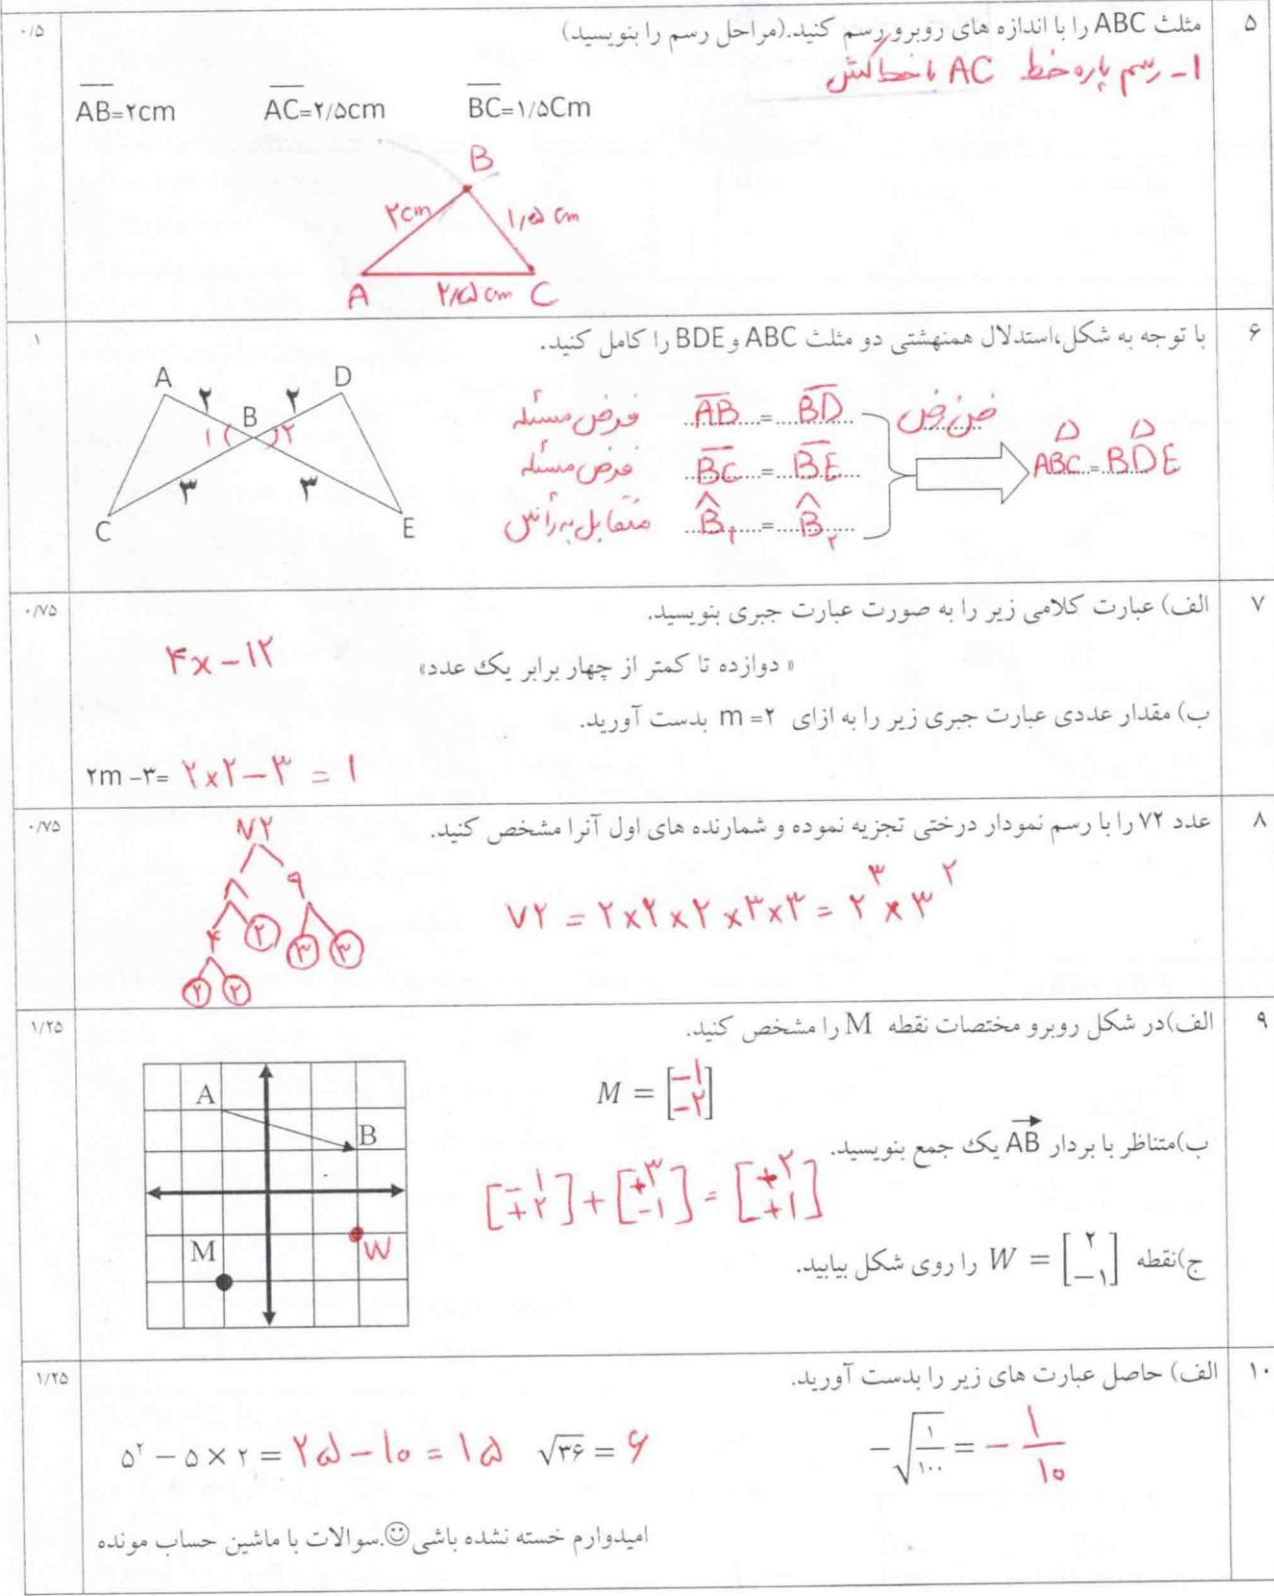 ۵ مثلث ABC را با اندازه های روبرو رسم کنید.(مراحل رسم را بنویسید) ۰/۵
۱- رسم پاره خط AC با خط کش
AB=۲cm AC=۲/۵cm BC=۱/۵Cm
B
۲cm ۱/۵ cm
A ۲/۵ cm C
۶ با توجه به شکل،استدلال همنهشتی دو مثلث ABC و BDE را کامل کنید. ۱
A ۲ ۲ D
B
۱ ۲
۳ ۳
C E
فرض مسئله AB = BD
فرض مسئله BC = BE
متقابل به رأس B۱ = B۲
ض ز ض
ABC = BDE
۷ الف) عبارت کلامی زیر را به صورت عبارت جبری بنویسید. ۰/۷۵
« دوازده تا کمتر از چهار برابر یک عدد» ۴x - ۱۲
ب) مقدار عددی عبارت جبری زیر را به ازای m =۲ بدست آورید.
۲m -۳= ۲×۲-۳ = ۱
۸ عدد ۷۲ را با رسم نمودار درختی تجزیه نموده و شمارنده های اول آنرا مشخص کنید. ۰/۷۵
۷۲
۸ ۹
۴ ۲ ۳ ۳
۲ ۲
۷۲ = ۲×۲×۲×۳×۳ = ۲³ × ۳²
۹ الف)در شکل روبرو مختصات نقطه M را مشخص کنید. ۱/۲۵
M = [-۱ -۲]
ب)متناظر با بردار AB یک جمع بنویسید.
[-۱ +۲] + [+۳ -۱] = [+۲ +۱]
ج)نقطه W = [۲ -۱] را روی شکل بیابید.
A
B
M W
۱۰ الف) حاصل عبارت های زیر را بدست آورید. ۱/۲۵
-√(۱/۱۰۰) = - ۱/۱۰
√۳۶ = ۶
۵² - ۵ × ۲ = ۲۵ - ۱۰ = ۱۵
امیدوارم خسته نشده باشی☺.سوالات با ماشین حساب مونده